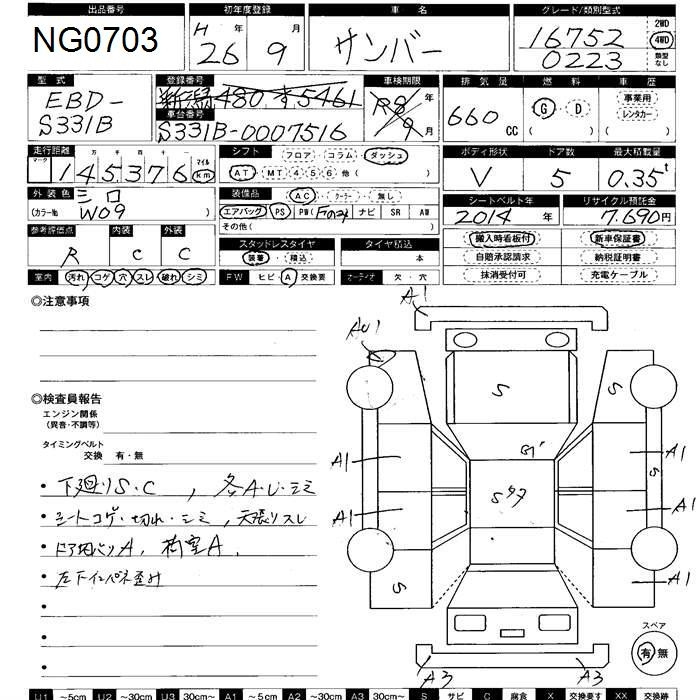 出品番号 初年度登録 車名 グレード/類別型式
NG0703 H 26年 9月 サンバー 16752 2WD
0223 4WD
類型なし
型式 登録番号 車検期限 排気量 燃料 車歴
EBD- 新潟480す5461 R8年 660CC G D 事業用
S331B 車台番号 9月 ( ) レンタカー
S331B-0007516 ( )
走行距離 シフト フロア・コラム・ダッシュ ボディ形状 ドア数 最大積載量
マーク 十万千百十一 マイル
145376 km AT・MT 4 5 6 他( ) V 5 0.35t
外装色 三口 装備品 AC・クーラー・無し シートベルト年 リサイクル預託金
(カラーNo W09 ) エアバッグ PS PW(Fのみ) ナビ SR AW 2014年 7,690円
その他( )
参考評価点 内装 外装 スタッドレスタイヤ タイヤ積込 搬入時看板付 新車保証書
R C C 装着・積込 本 自賠承認請求 納税証明書
室内 汚れ・コゲ・穴・スレ・破れ・シミ FW ヒビ・A・交換要 オーディオ 欠・穴 抹消受付可 充電ケーブル
◎注意事項
A1
A41
◎検査員報告
エンジン関係
(異音・不調等)
タイミングベルト
交換 有・無
・下廻りS・C , 各A・U・シミ
・シートコゲ・切れ・シミ , 天張りスレ
・ドア内バリA , 荷室A .
・左下インパネ歪み
S
S
G1
A1
A1
S タタ
S
A1
A1
S
A1
A3
A3
スペア
有・無
U1 ~5cm U2 ~30cm U3 30cm~ A1 ~5cm A2 ~30cm A3 30cm~ S サビ C 腐食 X 交換要す XX 交換跡